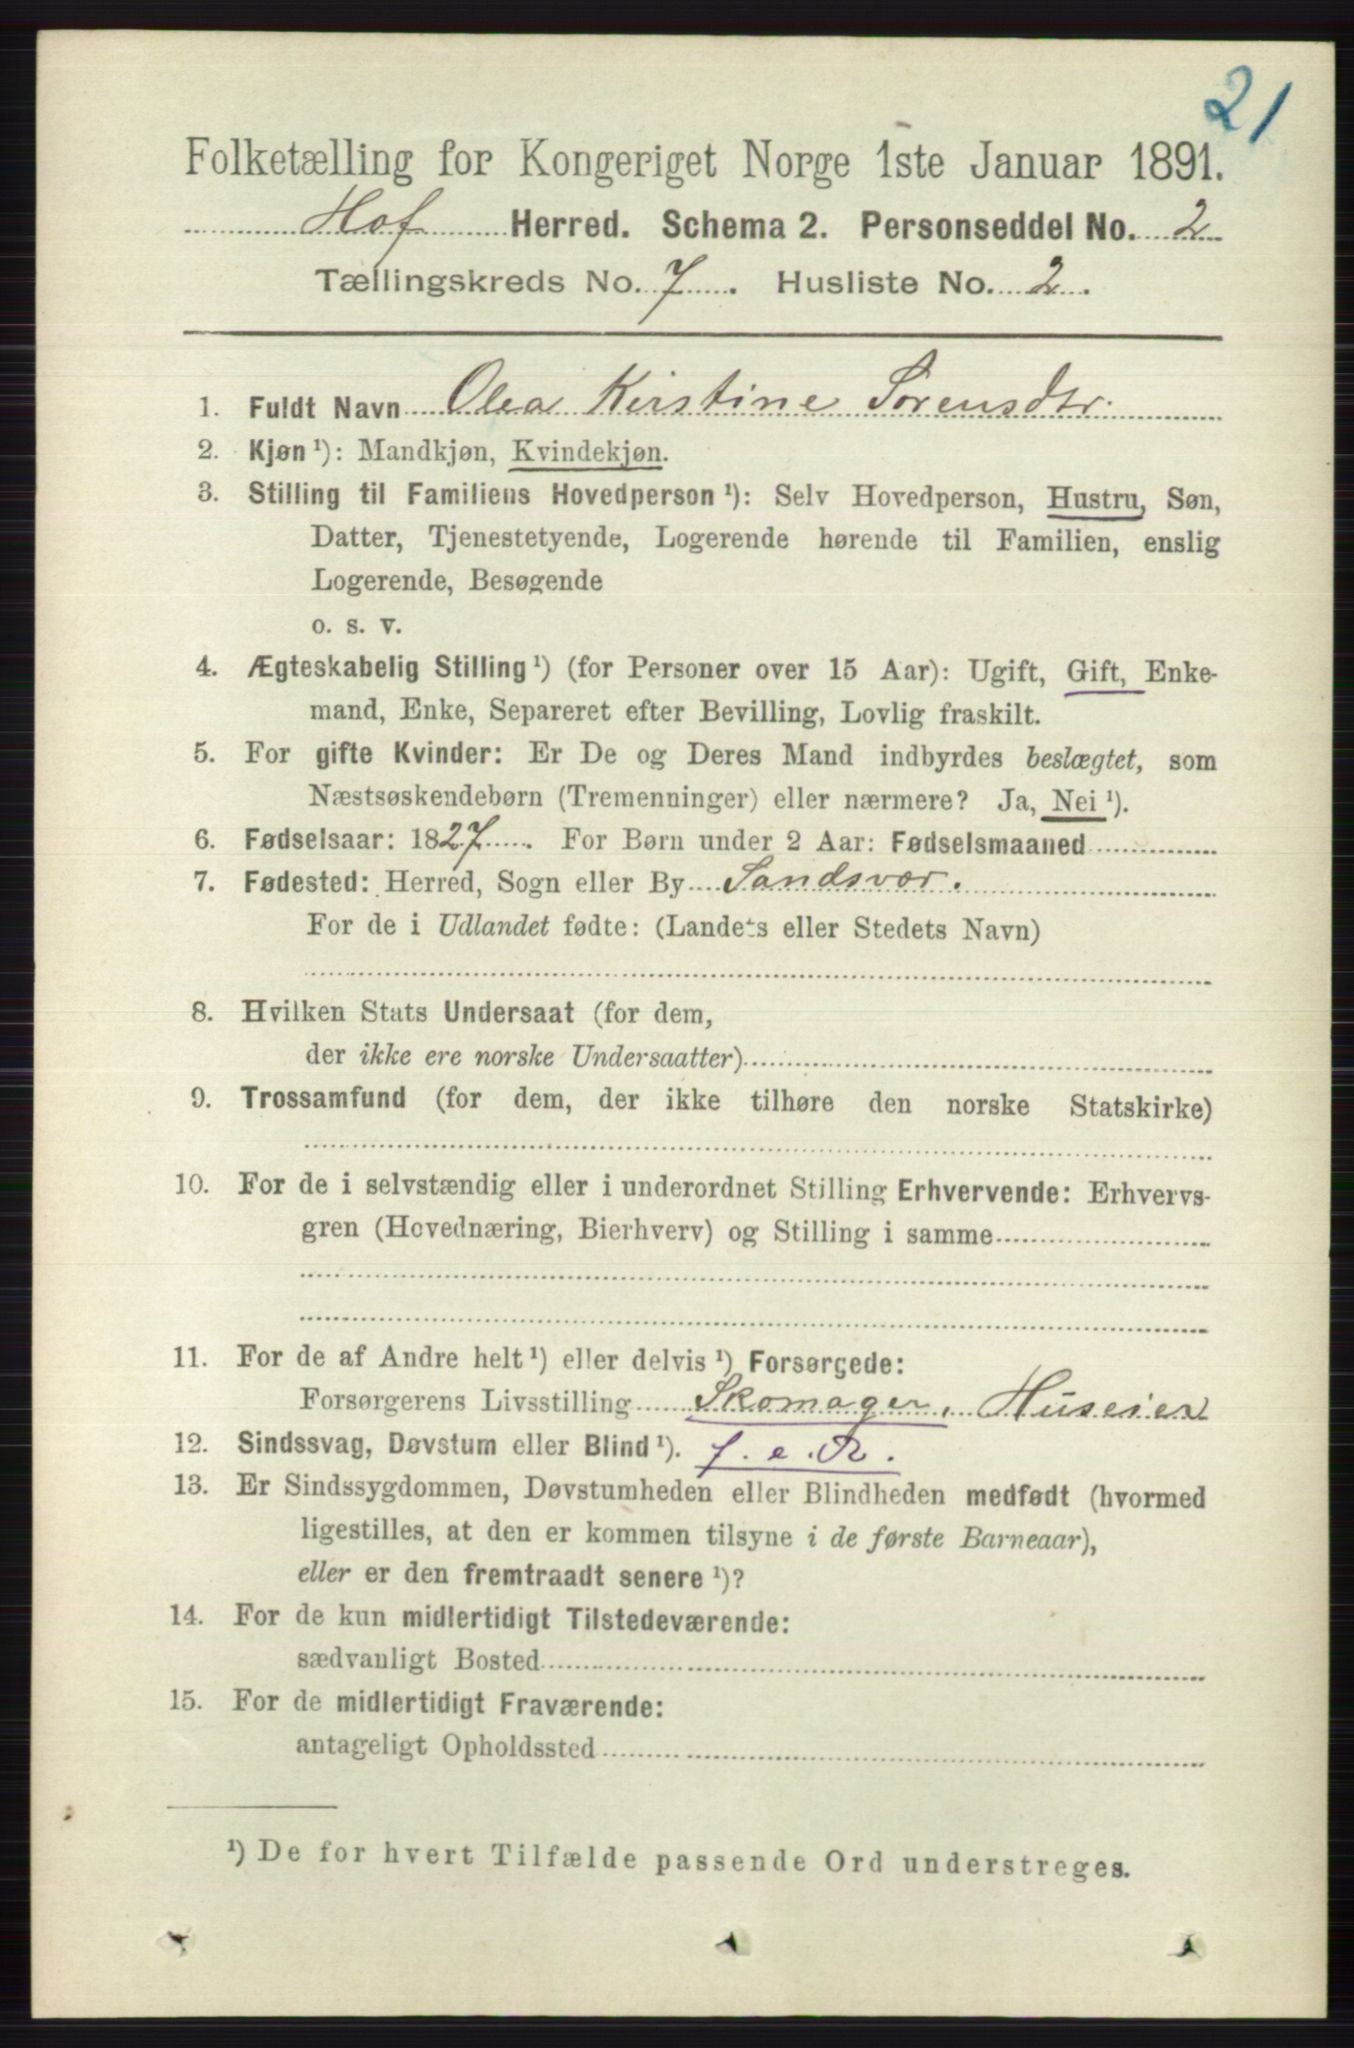 21
Folketælling for Kongeriget Norge 1ste Januar 1891.
Hof Herred. Schema 2. Personseddel No. 2
Tællingskreds No. 7. Husliste No. 2.
1. Fuldt Navn Olea Kirstine Sørensdtr.
2. Kjøn ¹): Mandkjøn, Kvindekjøn.
3. Stilling til Familiens Hovedperson ¹): Selv Hovedperson, Hustru, Søn,
Datter, Tjenestetyende, Logerende hørende til Familien, enslig
Logerende, Besøgende
o. s. v.
4. Ægteskabelig Stilling ¹) (for Personer over 15 Aar): Ugift, Gift, Enke-
mand, Enke, Separeret efter Bevilling, Lovlig fraskilt.
5. For gifte Kvinder: Er De og Deres Mand indbyrdes beslægtet, som
Næstsøskendebørn (Tremenninger) eller nærmere? Ja, Nei ¹).
6. Fødselsaar: 1827. For Børn under 2 Aar: Fødselsmaaned
7. Fødested: Herred, Sogn eller By Sandsvær.
For de i Udlandet fødte: (Landets eller Stedets Navn)
8. Hvilken Stats Undersaat (for dem,
der ikke ere norske Undersaatter)
9. Trossamfund (for dem, der ikke tilhøre den norske Statskirke)
10. For de i selvstændig eller i underordnet Stilling Erhvervende: Erhvervs-
gren (Hovednæring, Bierhverv) og Stilling i samme
11. For de af Andre helt ¹) eller delvis ¹) Forsørgede:
Forsørgerens Livsstilling Skomager, Huseier
12. Sindssvag, Døvstum eller Blind ¹). f. e. R.
13. Er Sindssygdommen, Døvstumheden eller Blindheden medfødt (hvormed
ligestilles, at den er kommen tilsyne i de første Barneaar),
eller er den fremtraadt senere ¹)?
14. For de kun midlertidigt Tilstedeværende:
sædvanligt Bosted
15. For de midlertidigt Fraværende:
antageligt Opholdssted
¹) De for hvert Tilfælde passende Ord understreges.